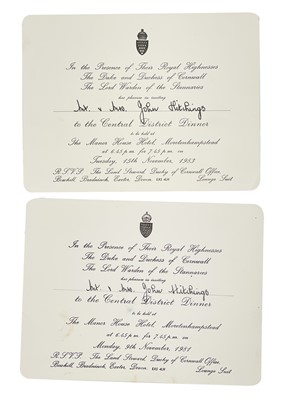 In the Presence of Their Royal Highnesses
The Duke and Duchess of Cornwall
The Lord Warden of the Stannaries
has pleasure in inviting
Mr. & Mrs. John Hitchings
to the Central District Dinner
to be held at
The Manor House Hotel, Moretonhampstead
at 6.45 p.m. for 7.45 p.m. on
Tuesday, 15th November, 1983
R.S.V.P. The Land Steward, Duchy of Cornwall Office,
Bradninch, Exeter, Devon.
Lounge Suit
In the Presence of Their Royal Highnesses
The Duke and Duchess of Cornwall
The Lord Warden of the Stannaries
has pleasure in inviting
Mr. & Mrs. John Hitchings
to the Central District Dinner
to be held at
The Manor House Hotel, Moretonhampstead
at 6.45 p.m. for 7.45 p.m. on
Monday, 9th November, 1981
R.S.V.P. The Land Steward, Duchy of Cornwall Office,
Bradninch, Exeter, Devon.
Lounge Suit